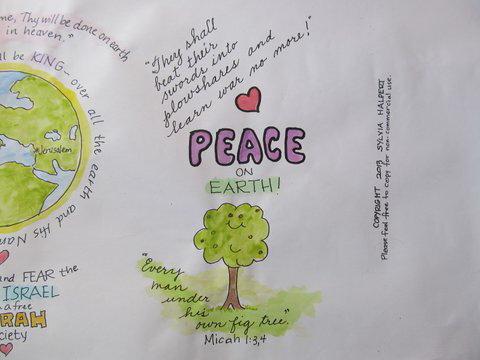 me, Thy will be done on earth
in heaven."
ll be KING- over all the earth and His Nam
Jerusalem
and FEAR the
ISRAEL
a free
RAH
ciety
"They shall
beat their
swords into
plowshares and
learn war no more!"
PEACE
ON
EARTH!
"Every
man
under
his
own fig tree."
Micah 1:3,4
COPYRIGHT 2013 SYLVIA HALPERN
Please feel free to copy for non-commercial use.